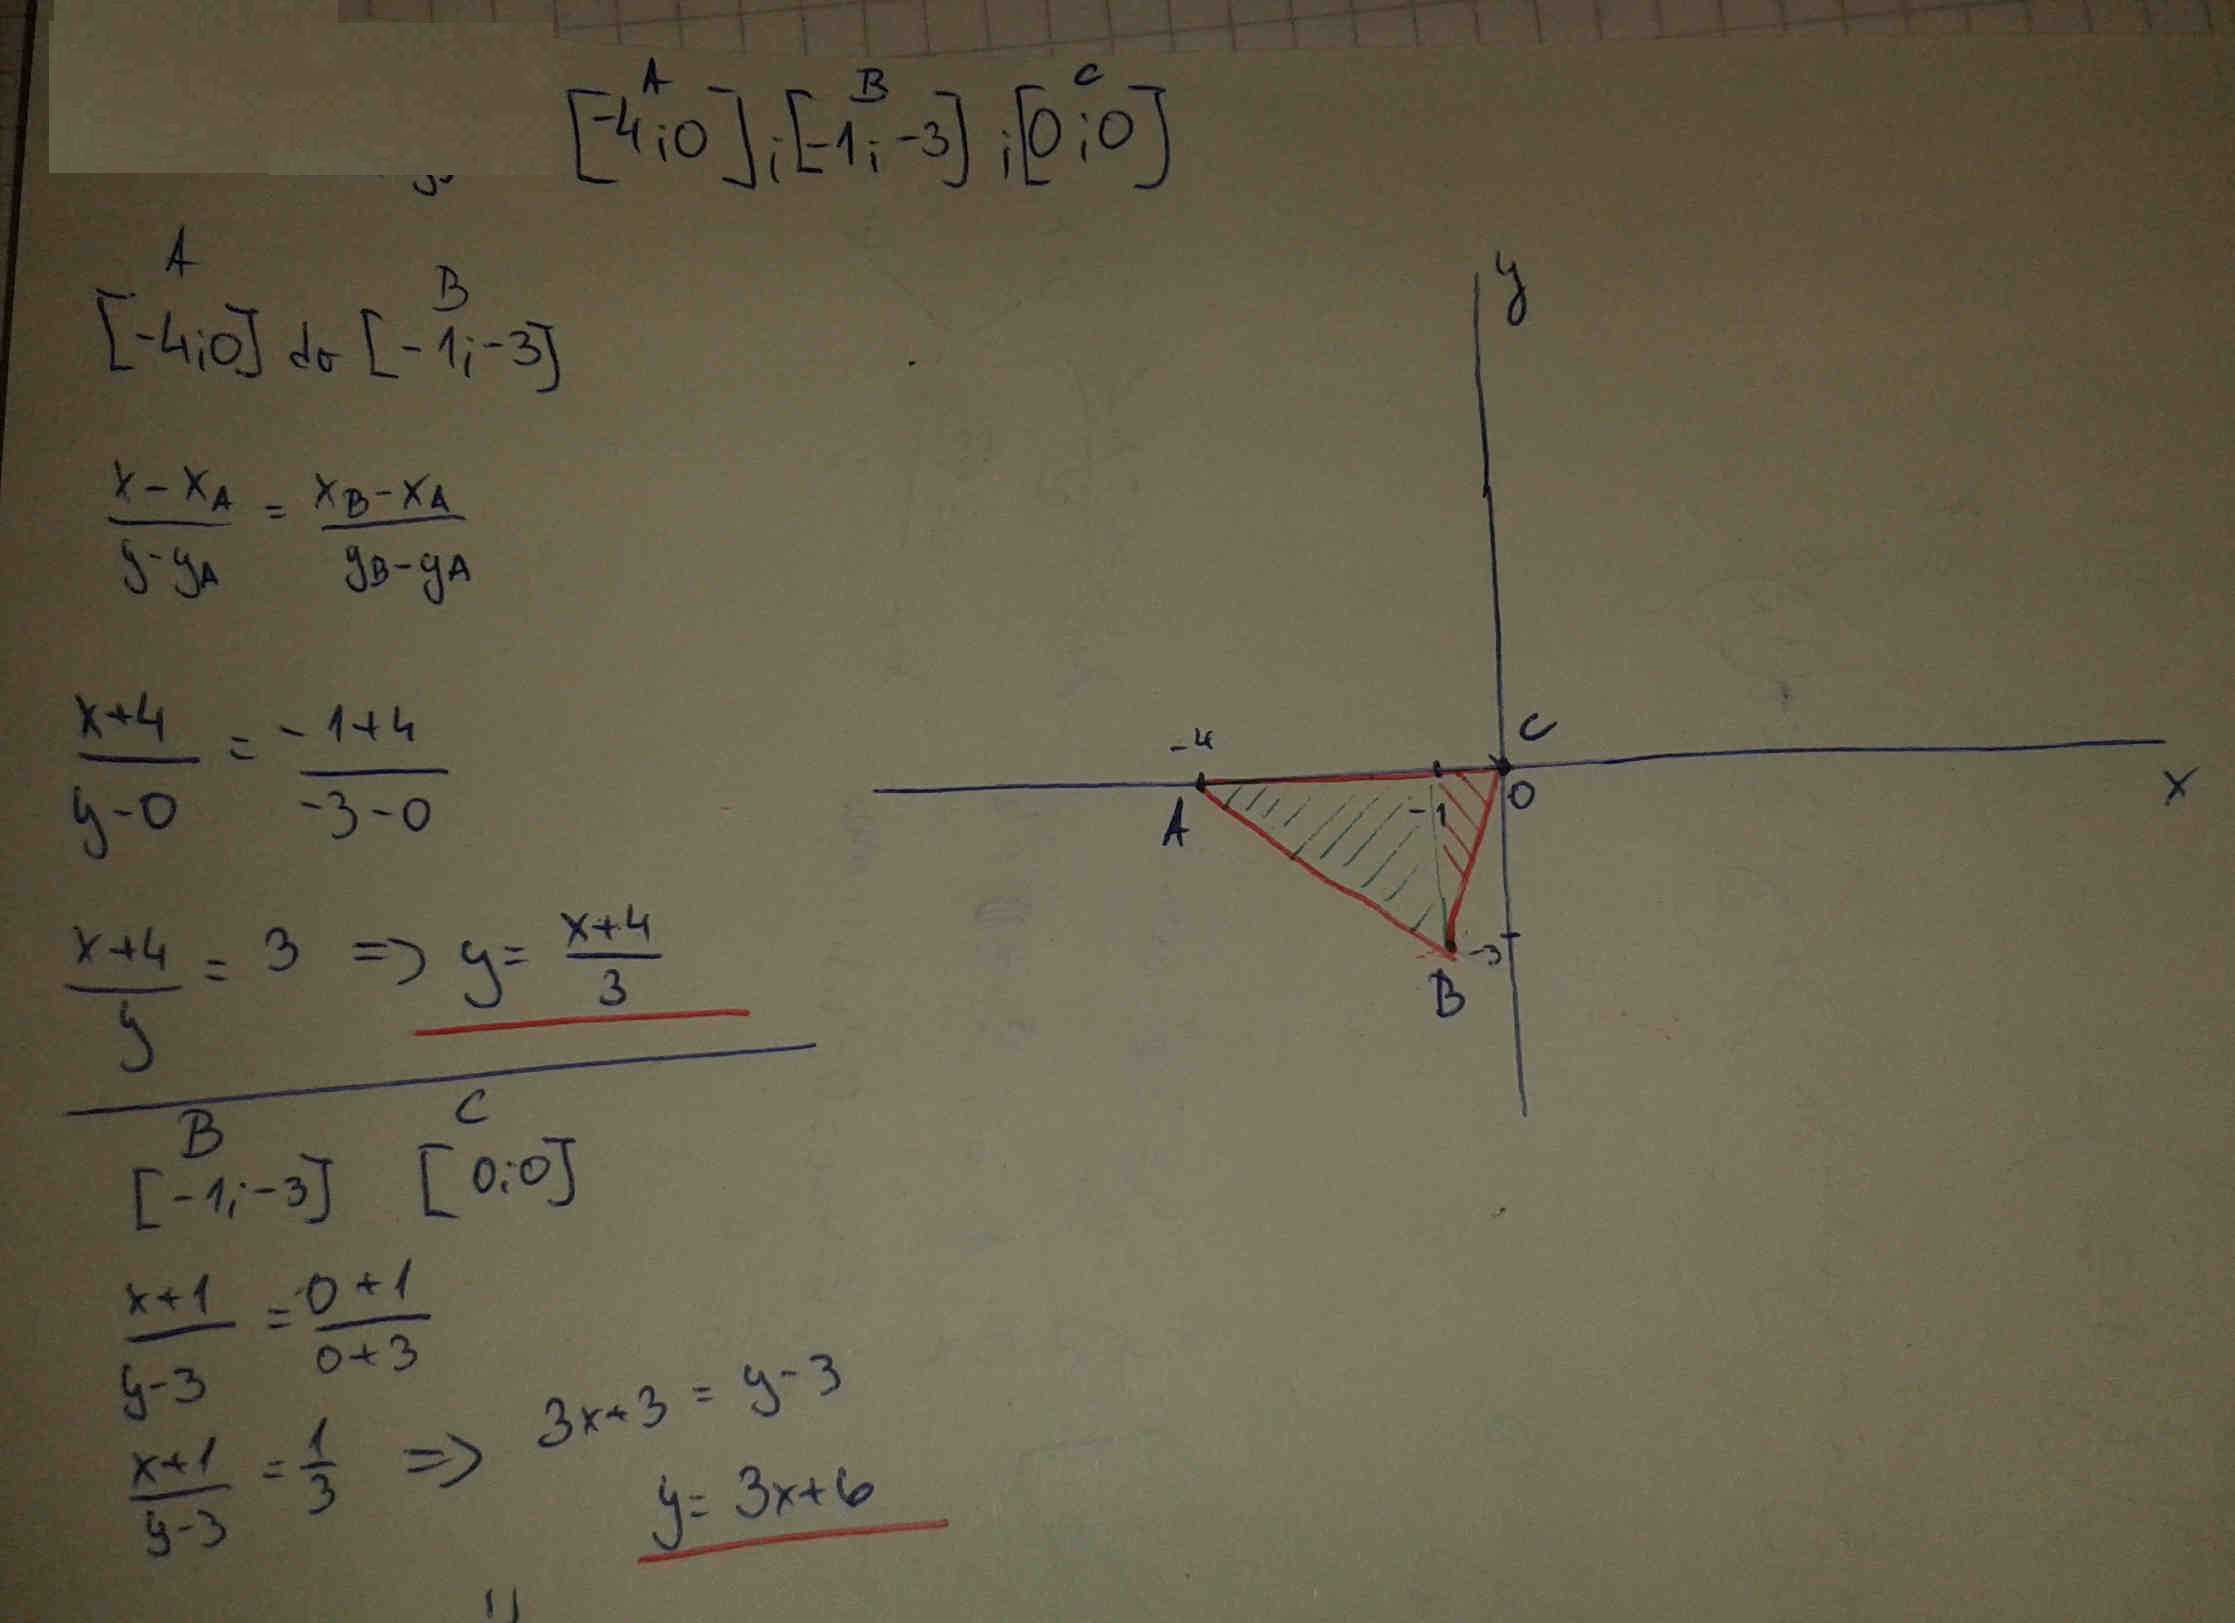 A B C
[-4;0];[-1;-3];[0;0]
A B
[-4;0] do [-1;-3]
x-xA / y-yA = xB-xA / yB-yA
x+4 / y-0 = -1+4 / -3-0
x+4 / y = 3 => y= x+4 / 3
B C
[-1;-3] [0;0]
x+1 / y-3 = 0+1 / 0+3
x+1 / y-3 = 1 / 3 => 3x+3 = y-3
y= 3x+6
y
-4
C
A
-1
0
x
-3
B